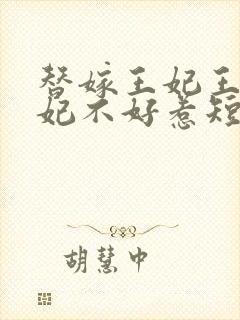 替嫁王妃王
妃不好惹短
胡慧中